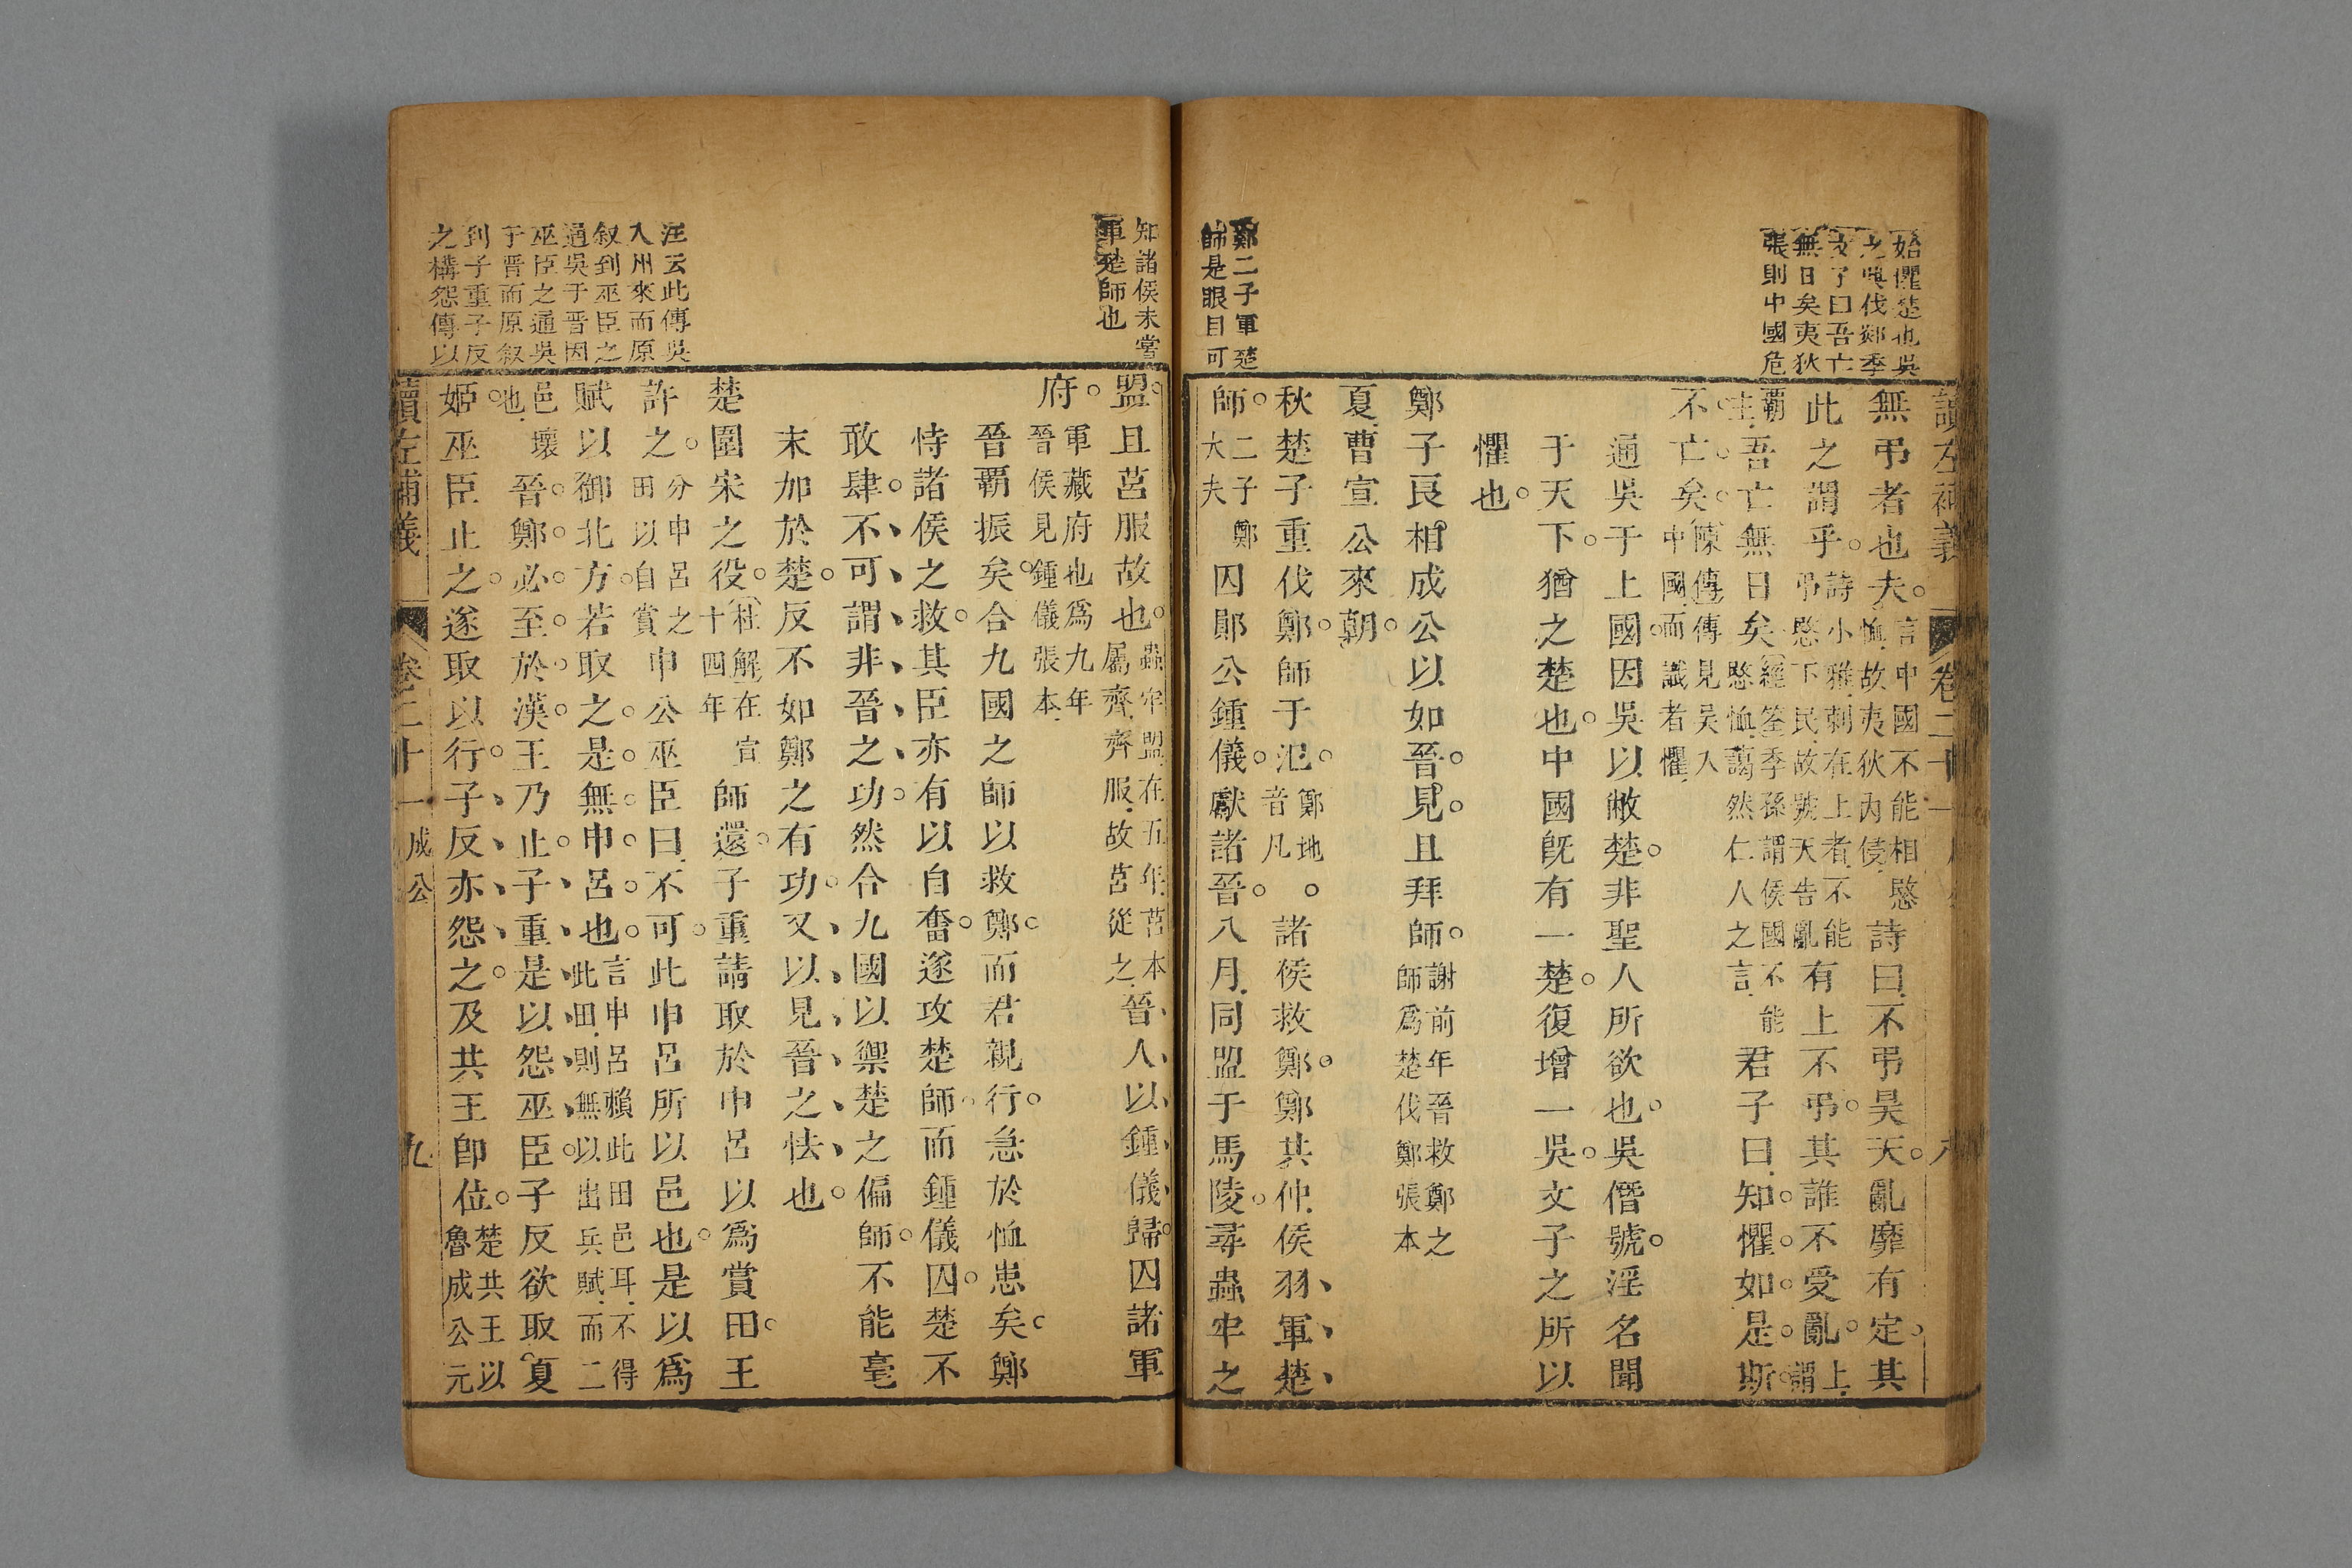 始懼楚也吳
之與伐郯季
文子曰吾亡
無日矣夷狄
張則中國危
鄭二子軍楚
師是眼目可
讀左補義 卷二十一
無弔者也夫言中國不能相愍恤故夷狄內侵詩曰不弔昊天亂靡有定其
此之謂乎詩小雅刺在上者不能弔愍下民故號天告亂有上不弔其誰不受亂上謂
霸主吾亡無日矣經筌季孫謂侯國不能愍恤藹然仁人之言君子曰知懼如是斯
不亡矣陳傳傳見吳入中國而識者懼
通吳于上國因吳以敝楚非聖人所欲也吳僭號淫名聞
于天下猶之楚也中國旣有一楚復增一吳文子之所以
懼也
鄭子良相成公以如晉見且拜師謝前年晉救鄭之師爲楚伐鄭張本
夏曹宣公來朝
秋楚子重伐鄭師于氾鄭地音凡諸侯救鄭鄭共仲侯羽軍楚
師二子鄭大夫囚鄖公鍾儀獻諸晉八月同盟于馬陵尋蟲牢之
知諸侯未嘗
軍楚師也
汪云此傳吳
入州來而原
叙到巫臣之
通吳于晉因
巫臣之通吳
于晉而原叙
到子重子反
之構怨傳以
盟且莒服故也蟲牢盟在五年莒本屬齊齊服故莒從之晉人以鍾儀歸囚諸軍
府軍藏府也爲九年晉侯見鍾儀張本
晉霸振矣合九國之師以救鄭而君親行急於恤患矣鄭
恃諸侯之救其臣亦有以自奮遂攻楚師而鍾儀囚楚不
敢肆不可謂非晉之功然合九國以禦楚之偏師不能毫
末加於楚反不如鄭之有功又以見晉之怯也
楚圍宋之役杜解在宣十四年師還子重請取於申呂以爲賞田王
許之分申呂之田以自賞申公巫臣曰不可此申呂所以邑也是以爲
賦以御北方若取之是無申呂也言申呂賴此田邑耳不得此田則無以出兵賦而二
邑壞也晉鄭必至於漢王乃止子重是以怨巫臣子反欲取夏
姬巫臣止之遂取以行子反亦怨之及共王卽位楚共王以魯成公元
讀左補義 卷二十一 成公 九